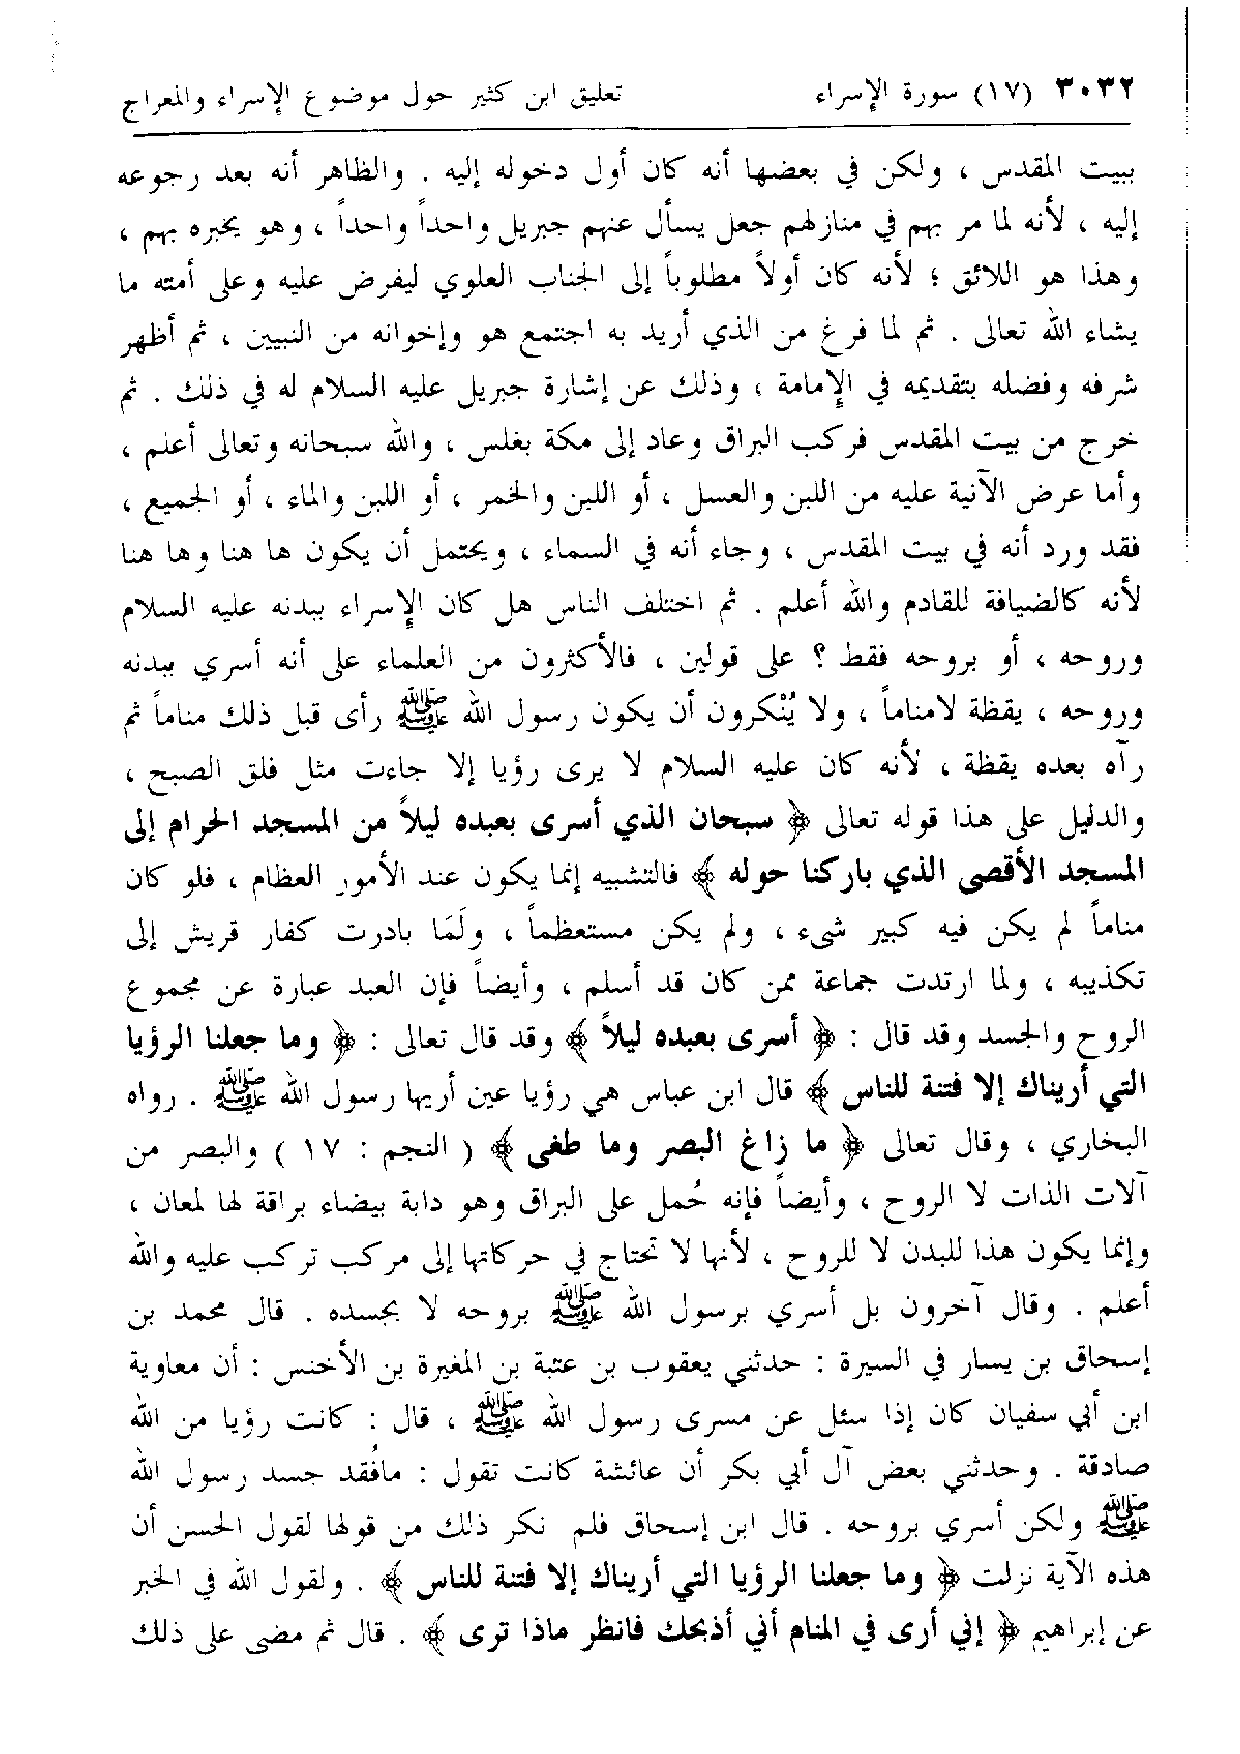 ٣٠٣٢ (١٧) سورة الإسراء تعليق ابن كثير حول موضوع الإسراء والمعراج
ببيت المقدس ، ولكن في بعضها أنه كان أول دخوله إليه . والظاهر أنه بعد رجوعه
إليه ، لأنه لما مر بهم في منازلهم جعل يسأل عنهم جبريل واحداً واحداً ، وهو يخبره بهم ،
وهذا هو اللائق ؛ لأنه كان أولاً مطلوباً إلى الجناب العلوي ليفرض عليه وعلى أمته ما
يشاء الله تعالى . ثم لما فرغ من الذي أريد به اجتمع هو وإخوانه من النبيين ، ثم أظهر
شرفه وفضله بتقديمه في الإمامة ، وذلك عن إشارة جبريل عليه السلام له في ذلك . ثم
خرج من بيت المقدس فركب البراق وعاد إلى مكة بغلس ، والله سبحانه وتعالى أعلم ،
وأما عرض الآنية عليه من اللبن والعسل ، أو اللبن والخمر ، أو اللبن والماء ، أو الجميع ،
فقد ورد أنه في بيت المقدس ، وجاء أنه في السماء ، ويحتمل أن يكون ها هنا وها هنا
لأنه كالضيافة للقادم والله أعلم . ثم اختلف الناس هل كان الإسراء ببدنه عليه السلام
وروحه ، أو بروحه فقط ؟ على قولين ، فالأكثرون من العلماء على أنه أسري ببدنه
وروحه ، يقظة لامناماً ، ولا يُنْكرون أن يكون رسول الله ﷺ رأى قبل ذلك مناماً ثم
رآه بعده يقظة ، لأنه كان عليه السلام لا يرى رؤيا إلا جاءت مثل فلق الصبح ،
والدليل على هذا قوله تعالى ﴿ سبحان الذي أسرى بعبده ليلاً من المسجد الحرام إلى
المسجد الأقصى الذي باركنا حوله ﴾ فالتشبيه إنما يكون عند الأمور العظام ، فلو كان
مناماً لم يكن فيه كبير شىء ، ولم يكن مستعظماً ، ولَمَا بادرت كفار قريش إلى
تكذيبه ، ولما ارتدت جماعة ممن كان قد أسلم ، وأيضاً فإن العبد عبارة عن مجموع
الروح والجسد وقد قال : ﴿ أسرى بعبده ليلاً ﴾ وقد قال تعالى : ﴿ وما جعلنا الرؤيا
التي أريناك إلا فتنة للناس ﴾ قال ابن عباس هي رؤيا عين أريها رسول الله ﷺ . رواه
البخاري ، وقال تعالى ﴿ ما زاغ البصر وما طغى ﴾ ( النجم : ١٧ ) والبصر من
آلات الذات لا الروح ، وأيضاً فإنه حُمل على البراق وهو دابة بيضاء براقة لها لمعان ،
وإنما يكون هذا للبدن لا للروح ، لأنها لا تحتاج في حركاتها إلى مركب تركب عليه والله
أعلم . وقال آخرون بل أسري برسول الله ﷺ بروحه لا بجسده . قال محمد بن
إسحاق بن يسار في السيرة : حدثني يعقوب بن عتبة بن المغيرة بن الأخنس : أن معاوية
ابن أبي سفيان كان إذا سئل عن مسرى رسول الله ﷺ ، قال : كانت رؤيا من الله
صادقة . وحدثني بعض آل أبي بكر أن عائشة كانت تقول : مافُقد جسد رسول الله
ﷺ ولكن أسري بروحه . قال ابن إسحاق فلم نكر ذلك من قولها لقول الحسن أن
هذه الآية نزلت ﴿ وما جعلنا الرؤيا التي أريناك إلا فتنة للناس ﴾ . ولقول الله في الخبر
عن إبراهيم ﴿ إني أرى في المنام أني أذبحك فانظر ماذا ترى ﴾ . قال ثم مضى على ذلك